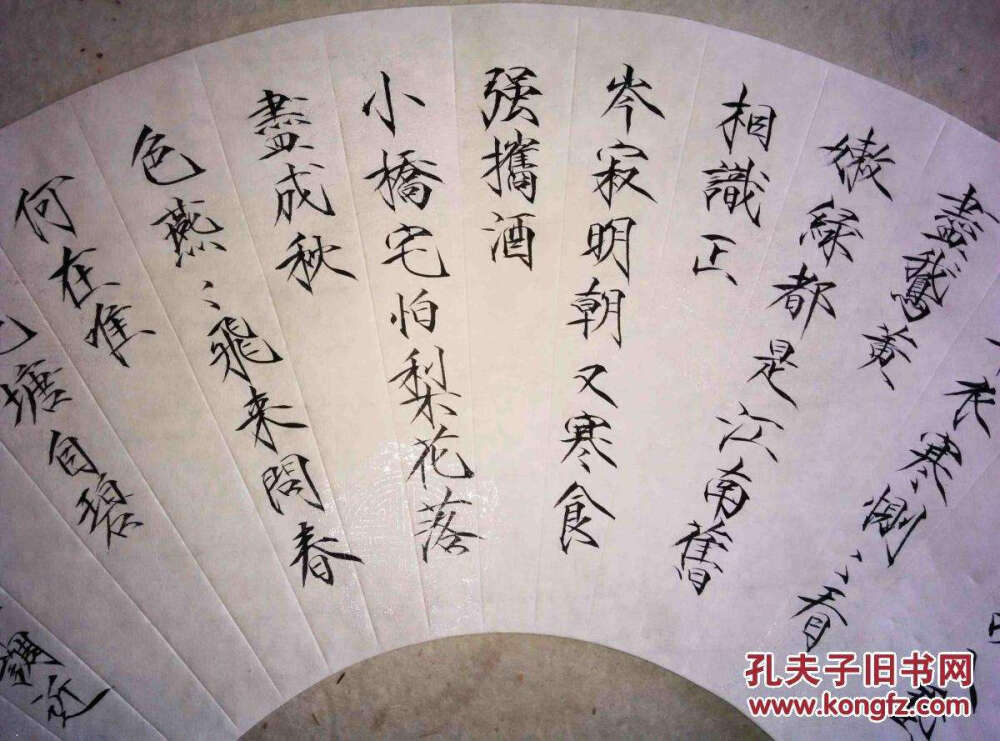 衣寒惻〻看
盡鵝黃
嫩綠都是江南舊
相識正
岑寂明朝又寒食
强攜酒
小橋宅怕梨花落
盡成秋
色燕〻飛来問春
何在惟
塘自碧
調近
孔夫子旧书网
www.kongfz.com